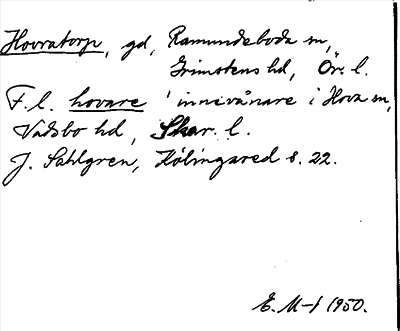 Hovratorp, gd, Ramundeboda sn,
Grimstens hd, Ör. l.
F. l. hovare 'innevånare i Hova sn,
Vadsbo hd, Skar. l.
J. Sahlgren, Kölingared s. 22.
E. M-t 1950.